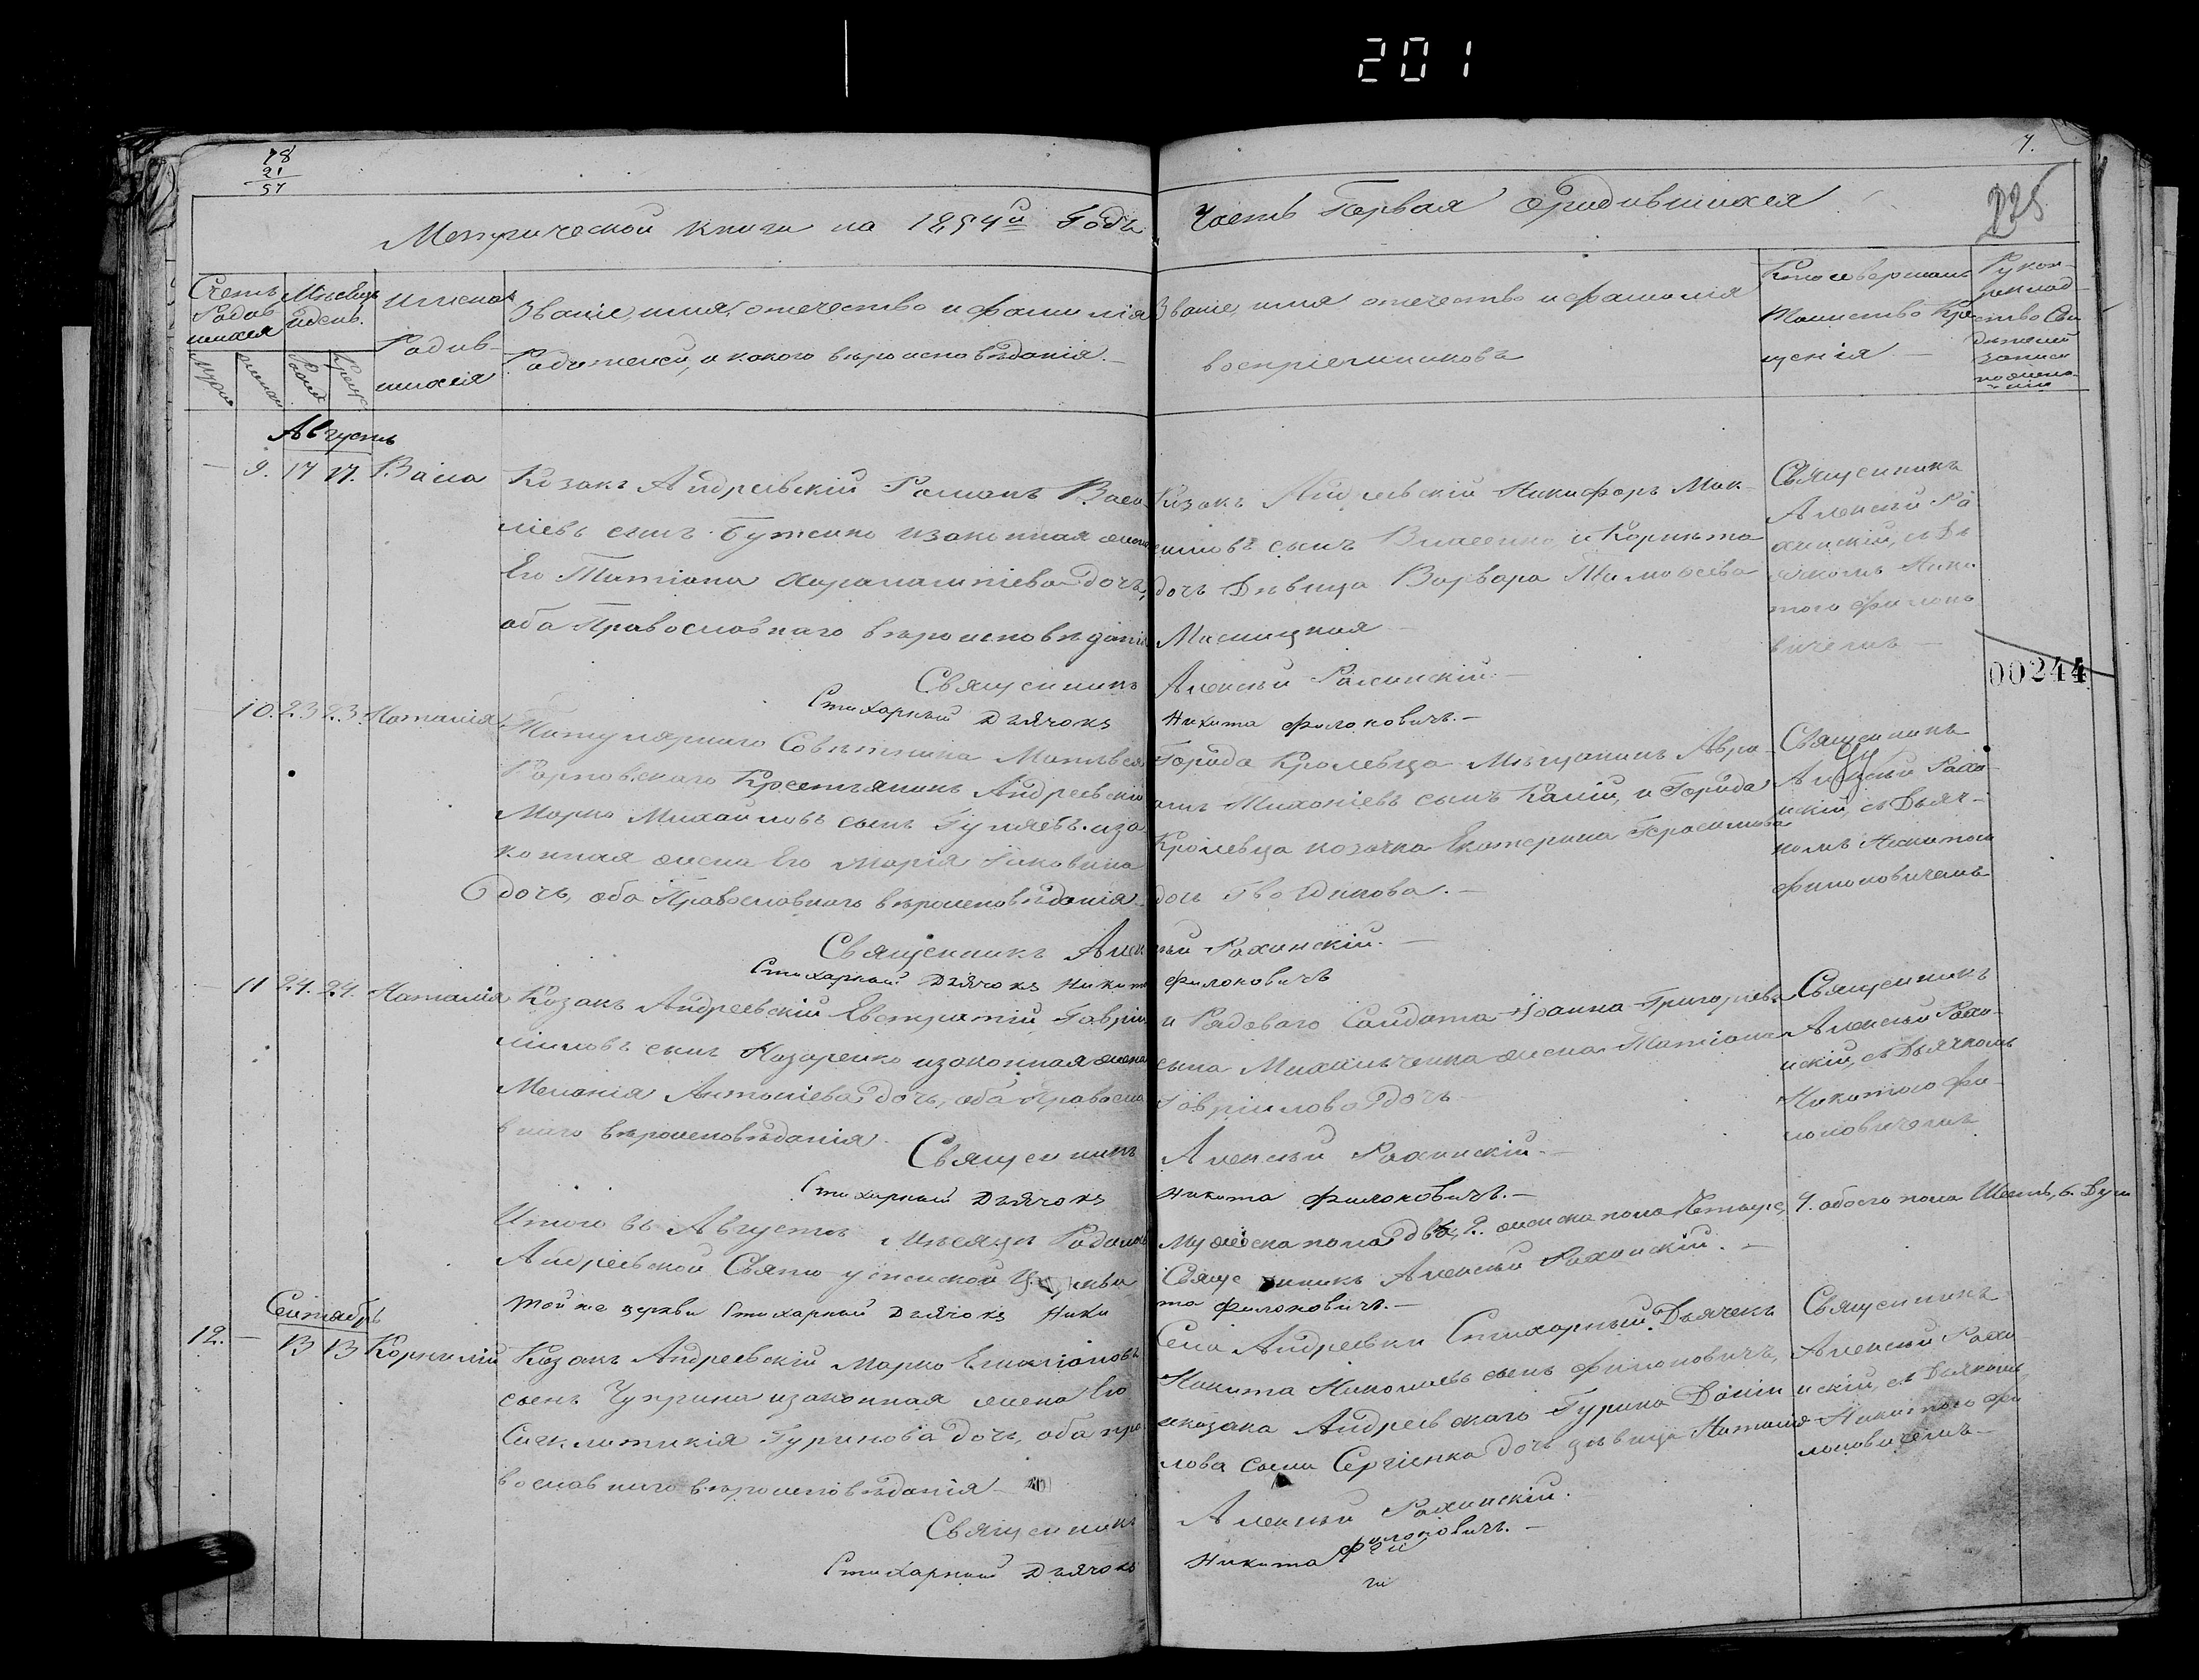 201
78
21
57
7.
225
Метрической книги на 1854й Годъ
Часть Первая Ородившихся
Счетъ Родившихся
Мѣсяцъ и день.
Имена Родившихся
Званіе, имя, отечество и фамилія
Родителей, и какого вѣроисповѣданія.
Званіе, имя отечество и фамилія
воспріемниковъ
Кто совершалъ
Таинство Крещенія
Рукоприкладство Свидѣтелей записи
Августъ
9. 17 17. Васса
Козакъ Андреевскій Романъ Васи-
ліевъ сынъ Бутенко изаконная жена
Его Татіана Харалампіева дочь,
оба Православнаго вѣроисповѣданія
Козакъ Андреевскій Никифоръ Мак-
симовъ сынъ Власенко и
дочь Дѣвица Варвара Тимоѳеева
Священникъ
Алексѣй Ра-
хинскій, съ Дья-
чкомъ Ники-
тою Филоно-
вичемъ
Священникъ Алексѣй Рахинскій.
Стихарный Дьячокъ Никита Филоновичъ.
00244
10. 23 23. Наталія
Титулярнаго Совѣтника Матвѣя
Карповскаго Крестьянинъ Андреевскій
Марко Михайловъ сынъ Гуляевъ иза
конная жена Его Марія Яковлева
дочь, оба Православнаго вѣроисповѣданія
Города Кролевца Мѣщанинъ Авра-
амъ сынъ и Города
Кролевца козачка Екатерина Герасимова
дочь Гвоздикова.
Священникъ
Алексѣй Рахи-
нскій, съ Дьяч-
комъ Никитою
Филоновичемъ
Священникъ Алексѣй Рахинскій.
Стихарный Дьячокъ Никита Филоновичъ
11 24. 24. Наталія
Козакъ Андреевскій Евстратій Гаврі-
иловъ сынъ Назаренко изаконная жена
Меланія Антоніева дочь, оба Правосла
внаго вѣроисповѣданія.
и Рядоваго Салдата Іоанна Григоріева
сына Михальченка жена Татіана
Гавріилова дочь
Священникъ
Алексѣй Рахи-
нскій, съ Дьячкомъ
Никитою Фи-
лоновичемъ
Священникъ Алексѣй Рахинскій.
Стихарный Дьячокъ Никита Филоновичъ.
Итого въ Августѣ Мѣсяцѣ Родилось мужеска пола два, 2. женска пола Четыре, 4. обоего пола Шесть, 6. Душ
Андреевской Свято успенской Церкви Священникъ Алексѣй Рахинскій.
той же церкви Стихарный Дьячокъ Никита Филоновичъ.
Сентябрь
12. 13 13 Корнилій
Козакъ Андреевскій Марко Емиліановъ
сынъ Чуприна изаконная жена Его
Синклитикія Гуринова дочь, оба пра
вославнаго вѣроисповѣданія
Села Андреевки Стихарный Дьячекъ
Никита Николаевъ сынъ Филоновичъ,
икозака Андреевскаго Гурина Даніи
лова сына Сергіенка дочь дѣвица Наталія
Священникъ
Алексѣй Рахи
нскій, съ Дьячкомъ
Никитою Фи
лоновичемъ
Священникъ Алексѣй Рахинскій.
Стихарный Дьячокъ Никита Филоновичъ.